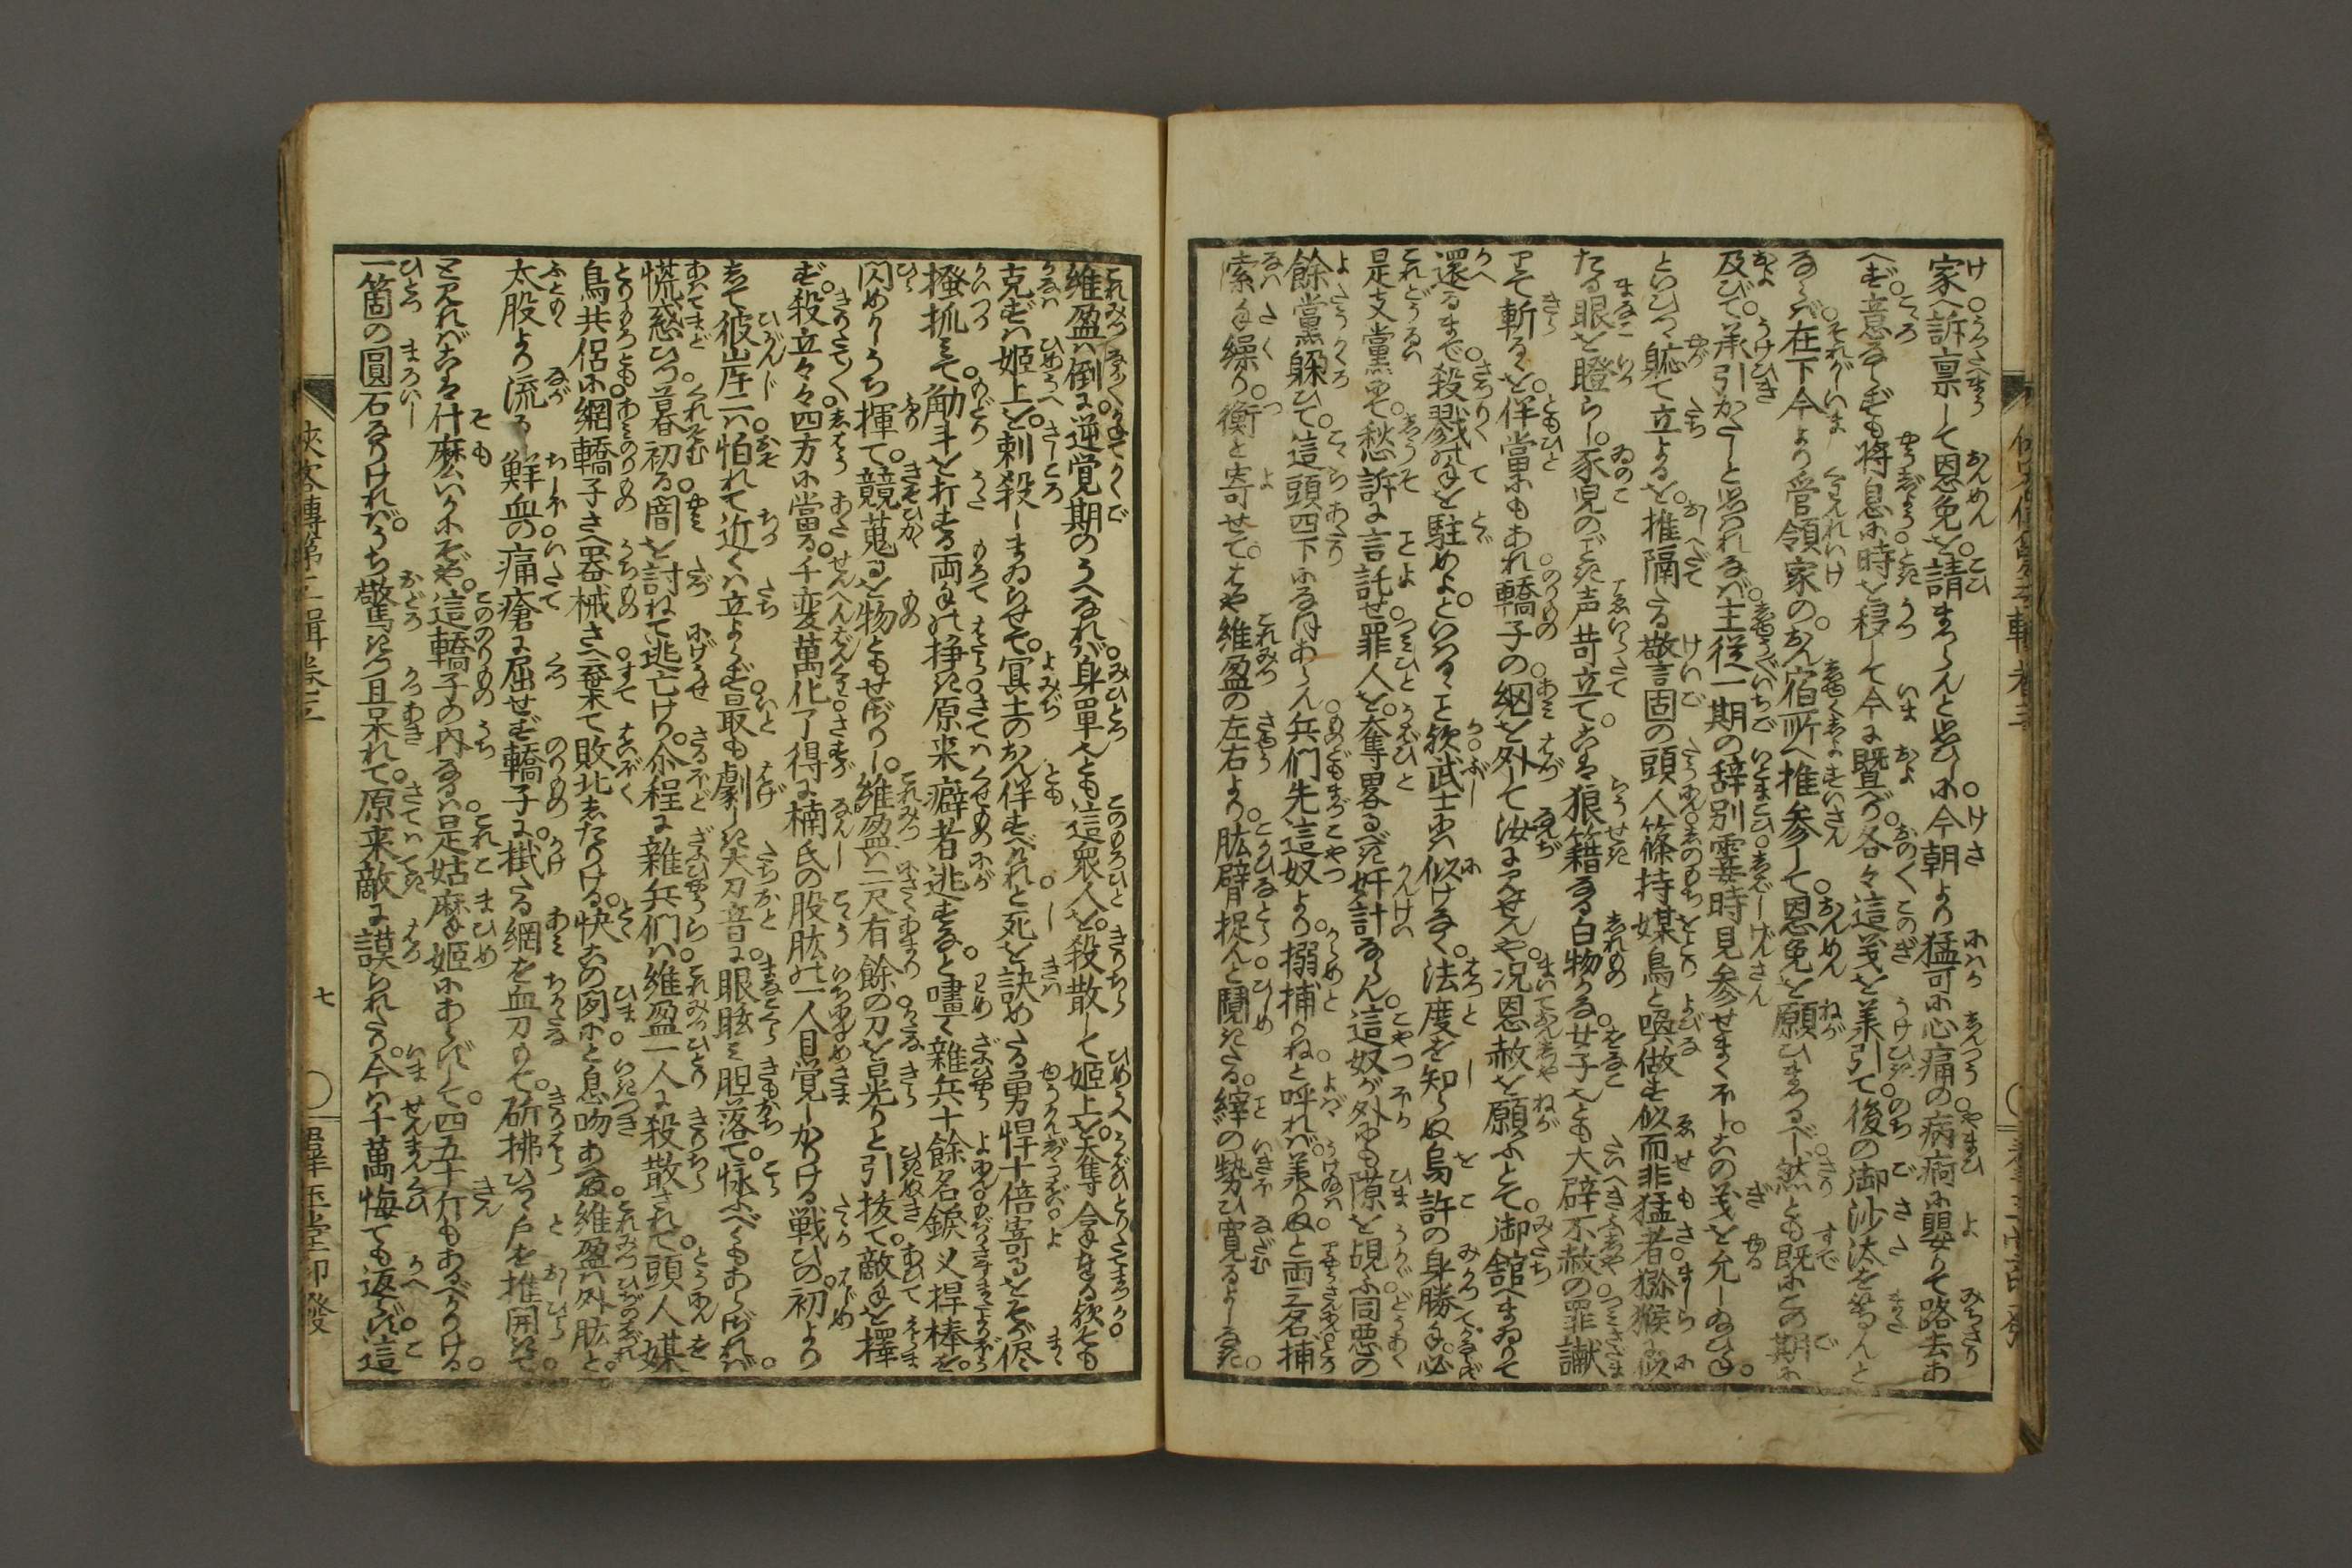 家へ訴稟して恩免を請まつらんと思ひしに今朝より猛可に心痛の病痾に嬰りて路去あ
へず。意ならずも将息に時を移して今に曁べり。各々這義を義引て後の御沙汰を等んと
ならバ在下今より管領家のおん宿所へ推参して恩免を願ひまつるべし。然とも既にこの期に
及びて。承引かたしと思れなバ主従一期の辞別霎時見参せまくほし。この義を允し給ひね。
といひつゝ軈て立よるを。推隔たる警固の頭人篠持媒鳥と喚做す似而非猛者猻猴に似
たる眼を瞪らし。豕児のごとき声苛立て。こは狼籍なる白物かな女子とも大辟不赦の罪讞
にて斬るゝを。伴當にもあれ轎子の網を外して汝に見せんや。况恩赦を願ふとて。御舘へまゐりて
還るまで殺戮の手を駐めよといはるゝ欤武士には似げなく。法度を知らぬ烏許の身勝手。必
是支黨にて愁訴に言託せ罪人を。奪畧るべき奸計ならん。這奴が外にも隙を覘ふ同惡の
餘黨躱ひて。這頭四下になほあらん。兵们先這奴より。搦捕らねと呼れバ。義りぬと両三名捕
索手繰り。衝と寄せて。はや維盈の左右より。肱臂捉んと鬩きたる。縡の勢ひ寛るよしなき。
維盈ハ倒に逆覚期のうへなれバ。身單なりとも這衆人を。殺散して姫上を。奪令まつる欤さても
克ずハ姫上を。刺殺しまゐらせて。冥土のおん伴すべけれと死を訣めたる勇悍十倍寄るをそが侭
掻抓みて。觔斗を打する両手の挣き。原来癖者逃すなと嘩て雑兵十餘名錑乂桿棒を。
閃めかしうち揮て。競蒐るを物ともせざりし。維盈ハ二尺有餘の刀を晃りと引抜て。敵手を擇
ず。殺立々々四方に當る。千変萬化了得に楠氏の股肱の一人目覚しかりける戦ひの初より
して彼岸二ハ怕れて近くハ立よらず最も劇しき大刀音に。眼眩み胆落て。怺ふべくもあらざれバ。
慌惑ひつゝ昏初る。闇を討ねて逃亡けり。尒程に雑兵们ハ。維盈一人に殺散されて。頭人媒
鳥共侶に。網轎子さへ器械さへ棄て敗北したりける。快この隙にと息吻あへぬ維盈ハ外肱と。
太股より流るゝ鮮血の痛瘡に屈せず轎子に。掛たる網を血刀もて。斫拂ひつゝ戸を推開きて。
と見れバこは什麽いかにぞや。這轎子の内なるハ。是姑麻姫にあらずして。四五十斤もあるべかりける。
一箇の圓石なりけれバ。うち驚きつゝ且呆れて。原来敵に謨られたり。今ハ千萬悔ても返らず。這
侠客傳第三輯巻三
七
群玉堂印發